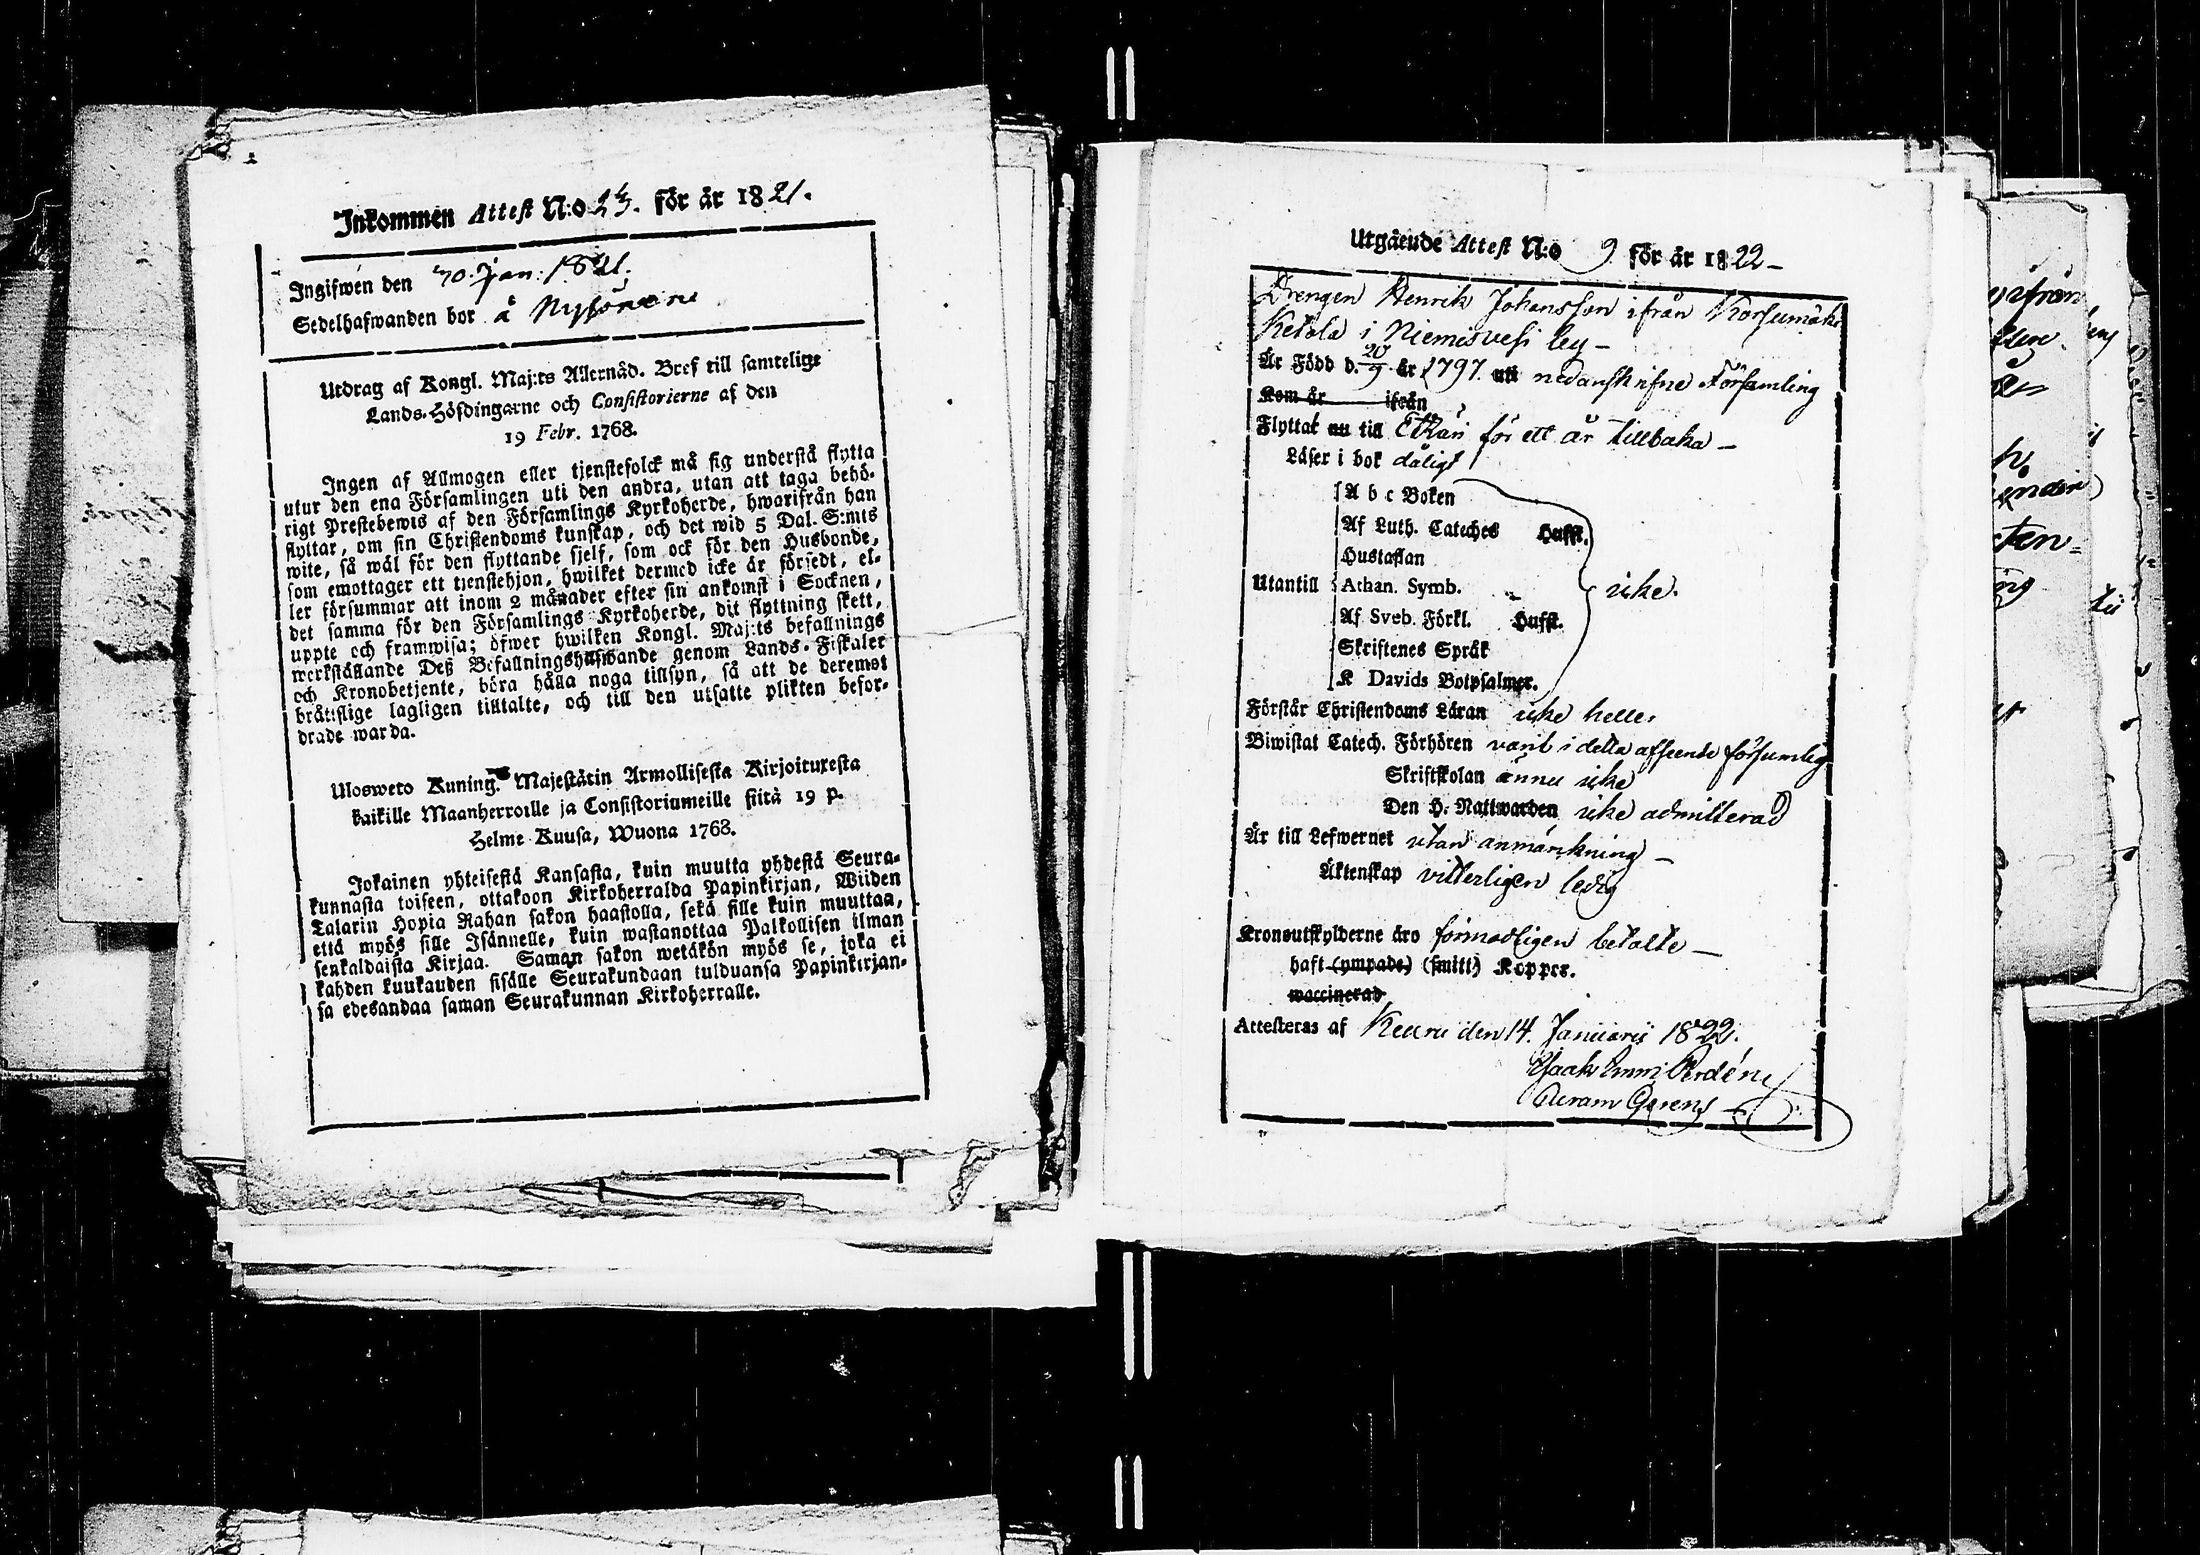 Inkommen Attest N:o 23. för år 1821.
Ingifwen den 30. Jan: 1821.
Sedelhafwanden bor å
Utdrag af Kongl. Maj:ts Allernåd. Bref till samtelige
Lands-Höfdingarne och Consistorierne af den
19 Febr. 1768.
Ingen af Allmogen eller tjenstefolck må sig understå flytta
utur den ena Församlingen uti den andra, utan att taga behö-
rigt Prestebewis af den Församlings Kyrkoherde, hwarifrån han
flyttar, om sin Christendoms kunskap, och det wid 5 Dal. S:mts
wite, så wäl för den flyttande sjelf, som ock för den Husbonde,
som emottager ett tjenstehjon, hwilket dermed icke är försedt, el-
ler försummar att inom 2 månader efter sin ankomst i Socknen,
det samma för den Församlings Kyrkoherde, dit flyttning skett,
uppte och framwisa; öfwer hwilken Kongl. Maj:ts befallnings
werkställande Deß Befallningshafwande genom Lands-Fiskaler
och Kronobetjente, böra hålla noga tillsyn, så att de deremot
bråttslige lagligen tilltalte, och till den utsatte plikten befor-
drade warda.
Ulosweto Kuning. Majestätin Armollisesta Kirjoituxesta
kaikille Maanherroille ja Consistoriumeille siitä 19 p.
Helme Kuusa, Wuona 1768.
Jokainen yhteisestä Kansasta, kuin muutta yhdestä Seura-
kunnasta toiseen, ottakoon Kirkoherralda Papinkirjan, Wiiden
Talarin Hopia Rahan sakon haastolla, sekä sille kuin muuttaa,
että myös sille Isännelle, kuin wastanottaa Palkollisen ilman
senkaldaista Kirjaa. Saman sakon wetäkön myös se, joka ei
kahden kuukauden sisälle Seurakundaan tulduansa Papinkirjan-
sa edesandaa saman Seurakunnan Kirkoherralle.
Utgående Attest N:o 9 för år 1822 -
Drengen Henrik Johansson ifrån Korsumäki
Ketola i Niemisvesi by -
Är Född d. 20/9 år 1797. uti nedanskrifne Församling
Kom år ifrån
Flyttat nu till Etkäri för ett år tillbaka -
Läser i bok dåligt
A b c Boken
Af Luth. Cateches Hufst.
Hustaflan
Utantill Athan. Symb. icke.
Af Sveb. Förkl. Hufst.
Skriftenes Språk
K Davids Botpsalmer.
Förstår Christendoms Läran icke heller
Biwistat Catech. Förhören varit i detta afseende försumlig
Skriftskolan ännu icke
Den H. Nattwarden icke admitterad
Är till Lefwernet utan anmärkning -
Äktenskap vitterligen ledig
Kronoutskylderne äro förmodligen betalte -
haft (ympade) (smitt) Koppor.
waccinerad
Attesteras af Keuru den 14. Januarii 1822.